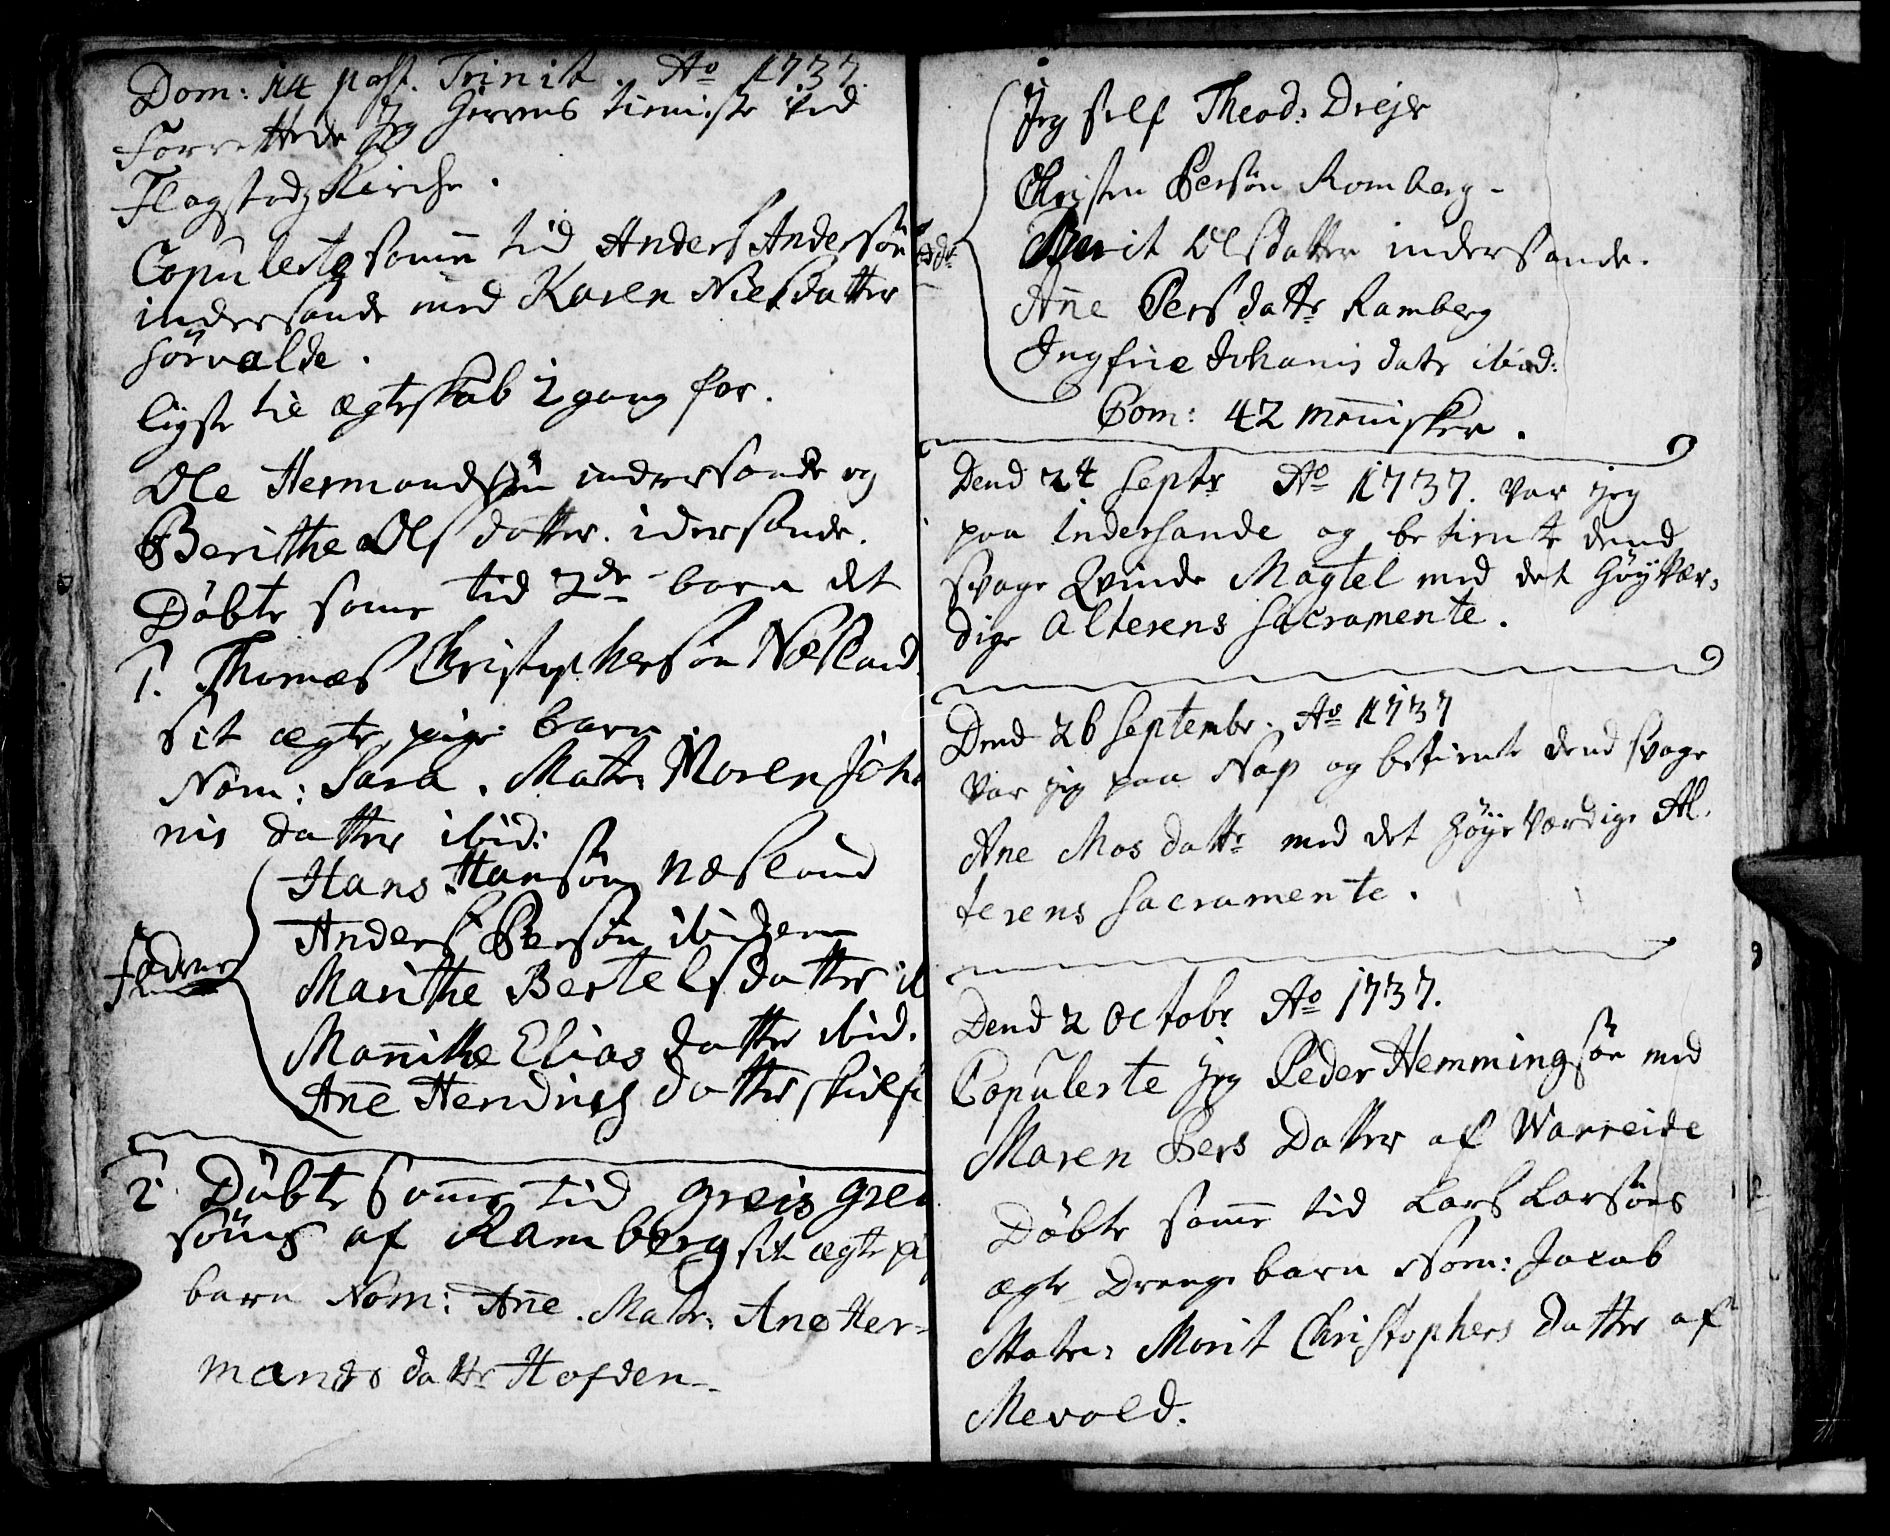 Dom: 14 post. Trinit. Ao 1737.
Forrettede Jeg Herrens tieniste ved
Flagstads Kirche.
Copulerte samē tid Anders Andersøn
indersande med Karen Niels datter
Sørvalde.
lyste til ægteskab 1 gang for.
Ole Hermandsøn indersande og
Berithe Ols datter. idersande.
Døbte samme tid 2de børn det
1. Thomas Christophersøn Næsland
sit ægte pige barn
Nom: Sara. Mater Maren Joha
nis datter ibid:
Hans Hansøn Næsland
Anders Persøn ibidem
Fadrene
Marithe Bertels datter ib
Mariithe Elias datter ibid.
Añe Hendrichs datter
2 Døbte samē tid greis grei
søns af Ramberg sit ægte pi
barn Nom: Añe. Mater: Ane Her-
mands datter Hofden
Jeg self Theod: Dreje
Christen Persøn Romberg -
Berit Olsdatter indersande.
Añe Pers datter Ramberg
Johanis datr ibid:
Com: 42 meñisker.
Dend 24 Septr Ao 1737. Var jeg
paa indersande og betiente dend
svage Qvinde Magtel med det Høyvær-
dige Alterens Sacramente.
Dend 26 Septembr. Ao 1737
Var jeg paa Nap og betiente dend svage
Ane Mos datter med det Høyeværdige Al.
terens Sacramente.
Dend 2 Octobr Ao 1737.
Copulerte jeg Peder Hemmingsøn med
Maren Pers Datter af Warreide
Døbte samē tid Lars Larsøns
ægte Drenge barn Nom: Jacob
Mater: Marit Christophers datter af
Mevold.